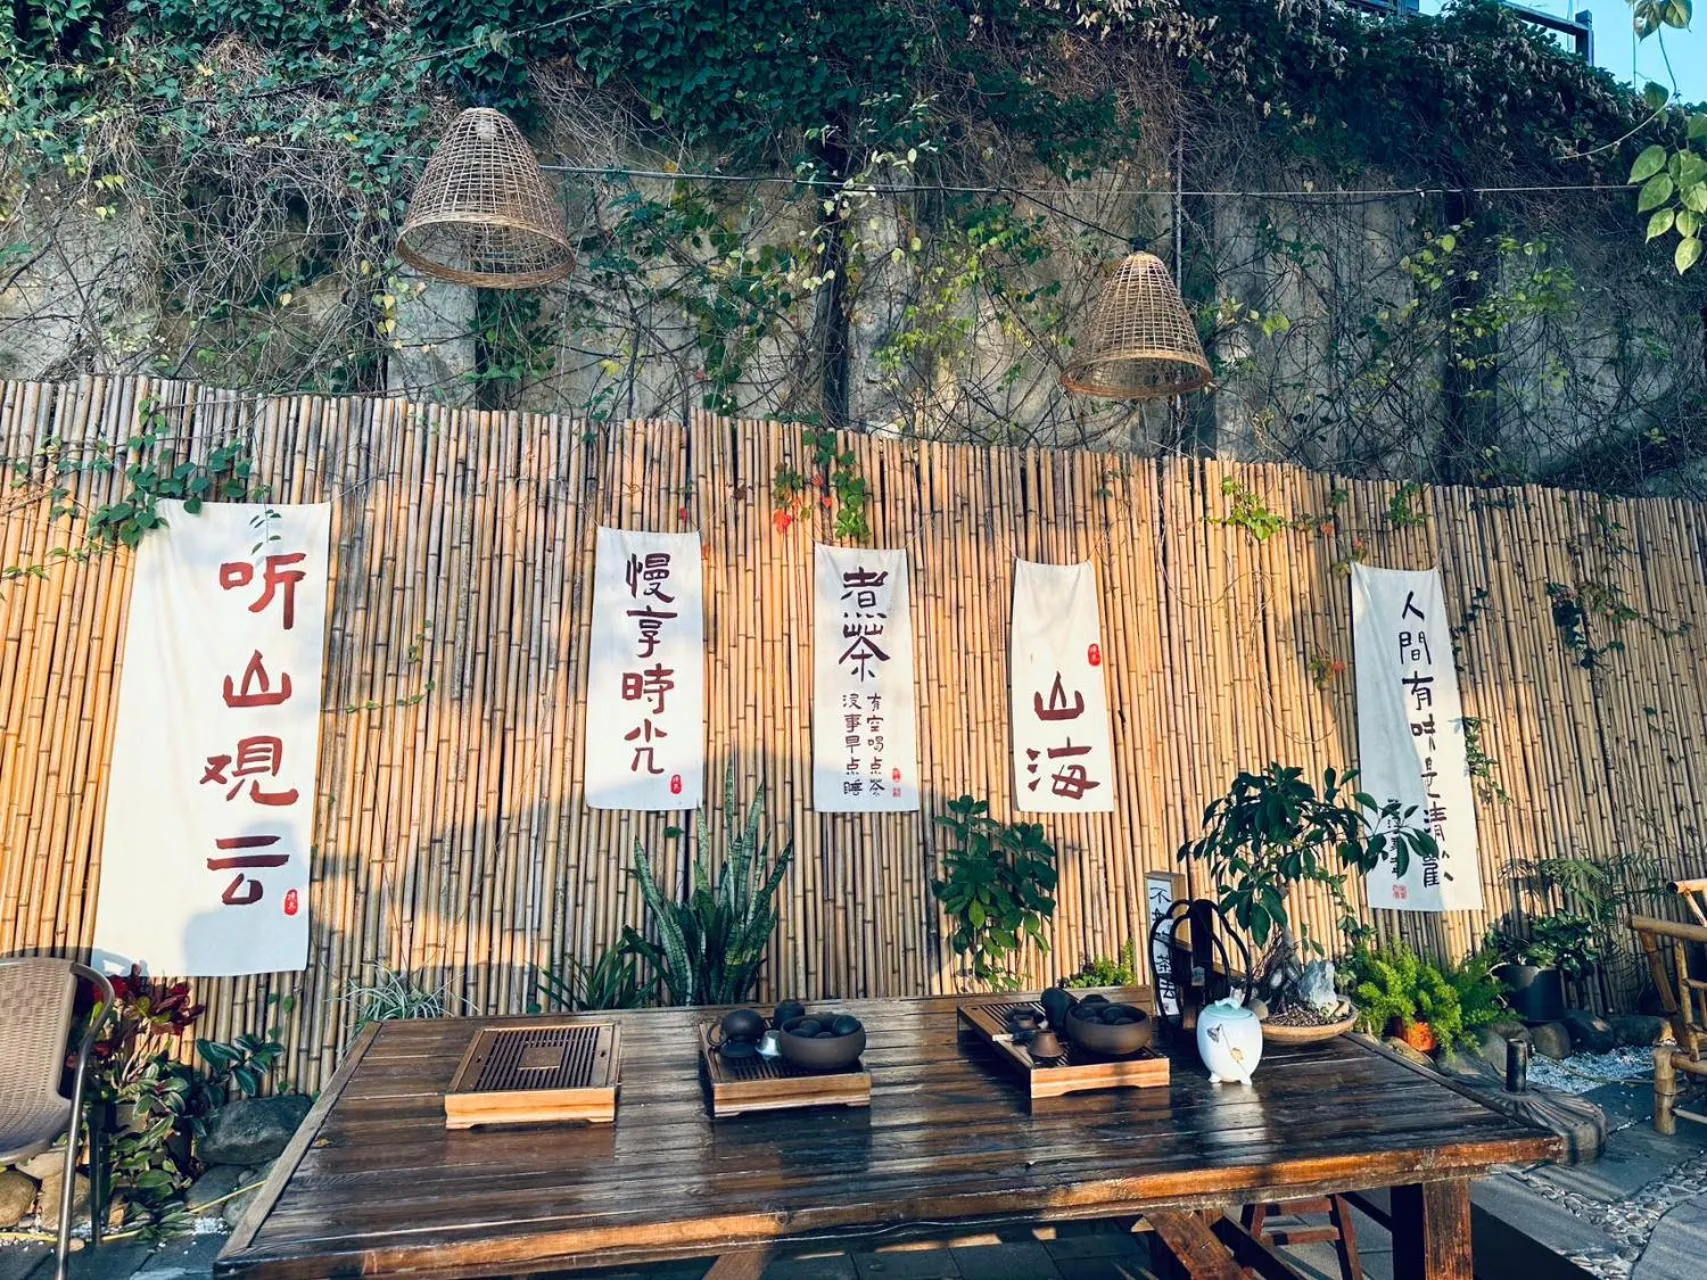 听山观云
慢享時光
煮茶
有空喝点茶
没事早点睡
山海
人間有味是清歡